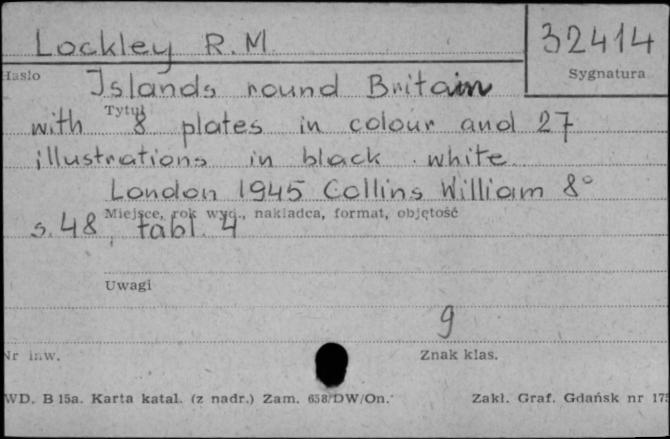 Lockley R.M.
32414
Hasło
Sygnatura
Islands round Britain
Tytuł
with 8 plates in colour and 27
illustrations in black . white
London 1945 Collins William 8°
Miejsce, rok wyd., nakładca, format, objętość
s. 48, tabl. 4
Uwagi
9
Nr inw.
Znak klas.
WD. B 15a. Karta katal. (z nadr.) Zam. 658/DW/On.
Zakł. Graf. Gdańsk nr 175